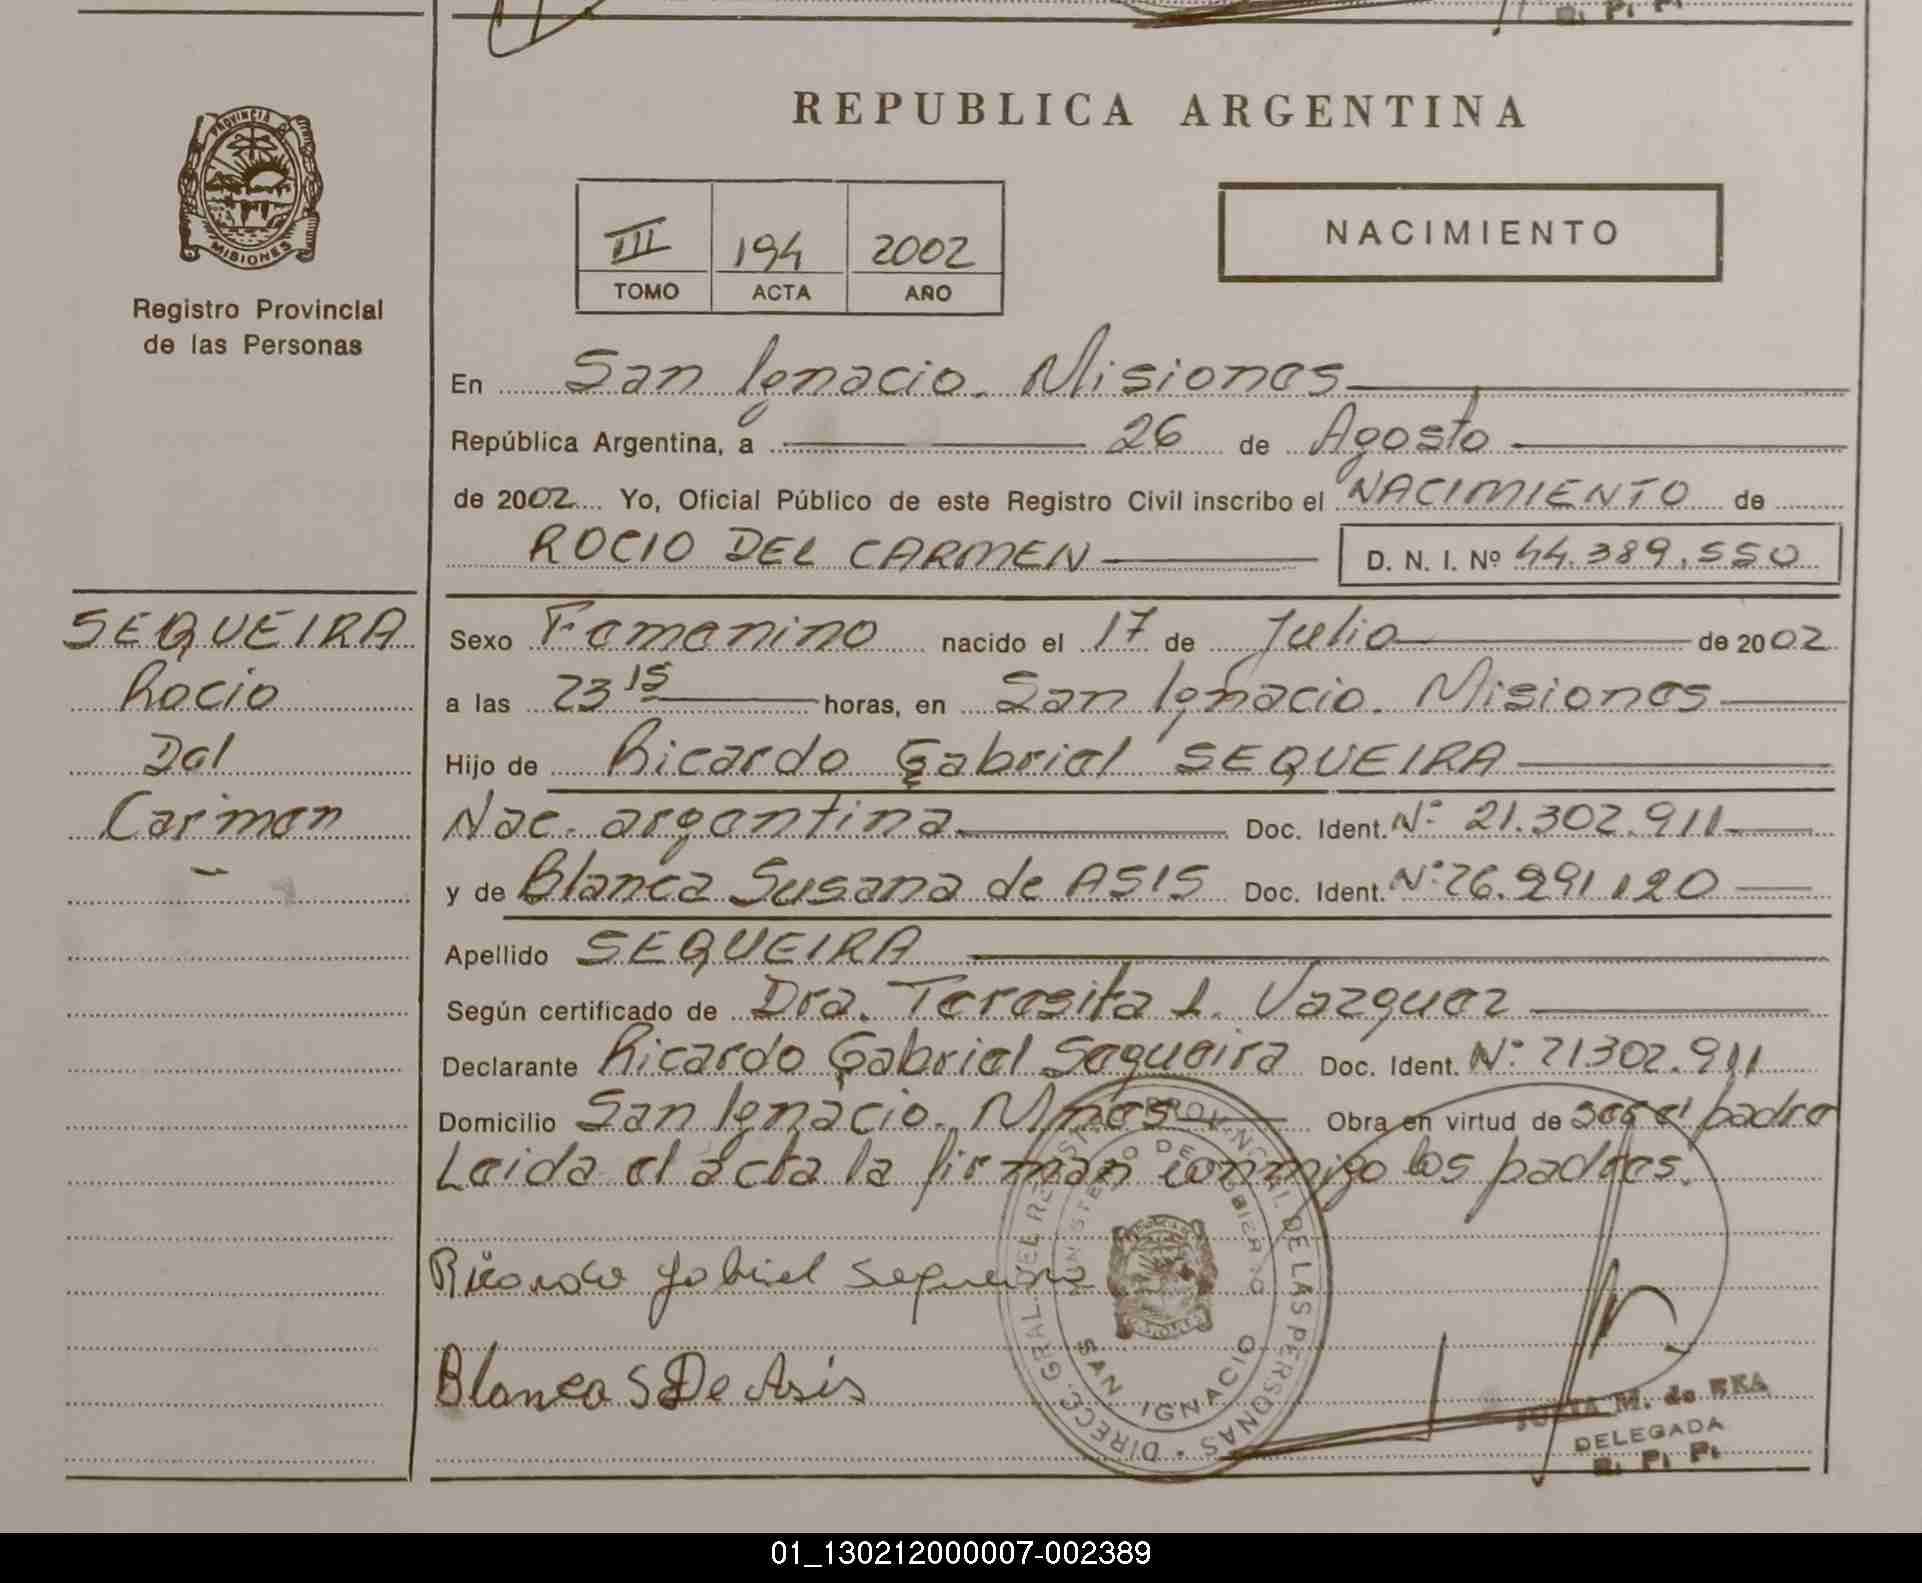 R. P. P.
REPUBLICA ARGENTINA
PROVINCIA DE MISIONES
Registro Provincial
de las Personas
III 194 2002
TOMO ACTA AÑO
NACIMIENTO
En San Ignacio. Misiones
República Argentina, a 26 de Agosto
de 2002 Yo, Oficial Público de este Registro Civil inscribo el NACIMIENTO de
ROCIO DEL CARMEN D. N. I. Nº 44.389.550
SEQUEIRA
Rocio
Del
Carmen
Sexo Femenino nacido el 17 de Julio de 2002
a las 23 15 horas, en San Ignacio. Misiones
Hijo de Ricardo Gabriel SEQUEIRA
Nac. argentina Doc. Ident. Nº 21.302.911
y de Blanca Susana de ASIS Doc. Ident. Nº 26.291.120
Apellido SEQUEIRA
Según certificado de Dra. Teresita L. Vazquez
Declarante Ricardo Gabriel Sequeira Doc. Ident. Nº 21302.911
Domicilio San Ignacio. Mnes Obra en virtud de ser el padre
Leida el acta la firman conmigo los padres.
Ricardo Gabriel Sequeira
Blanca S De Asis
DIRECC. GRAL. DEL REGISTRO PROVINCIAL DE LAS PERSONAS
MINISTERIO DE GOBIERNO
SAN IGNACIO
M. de
DELEGADA
R. P. P.
01_130212000007-002389